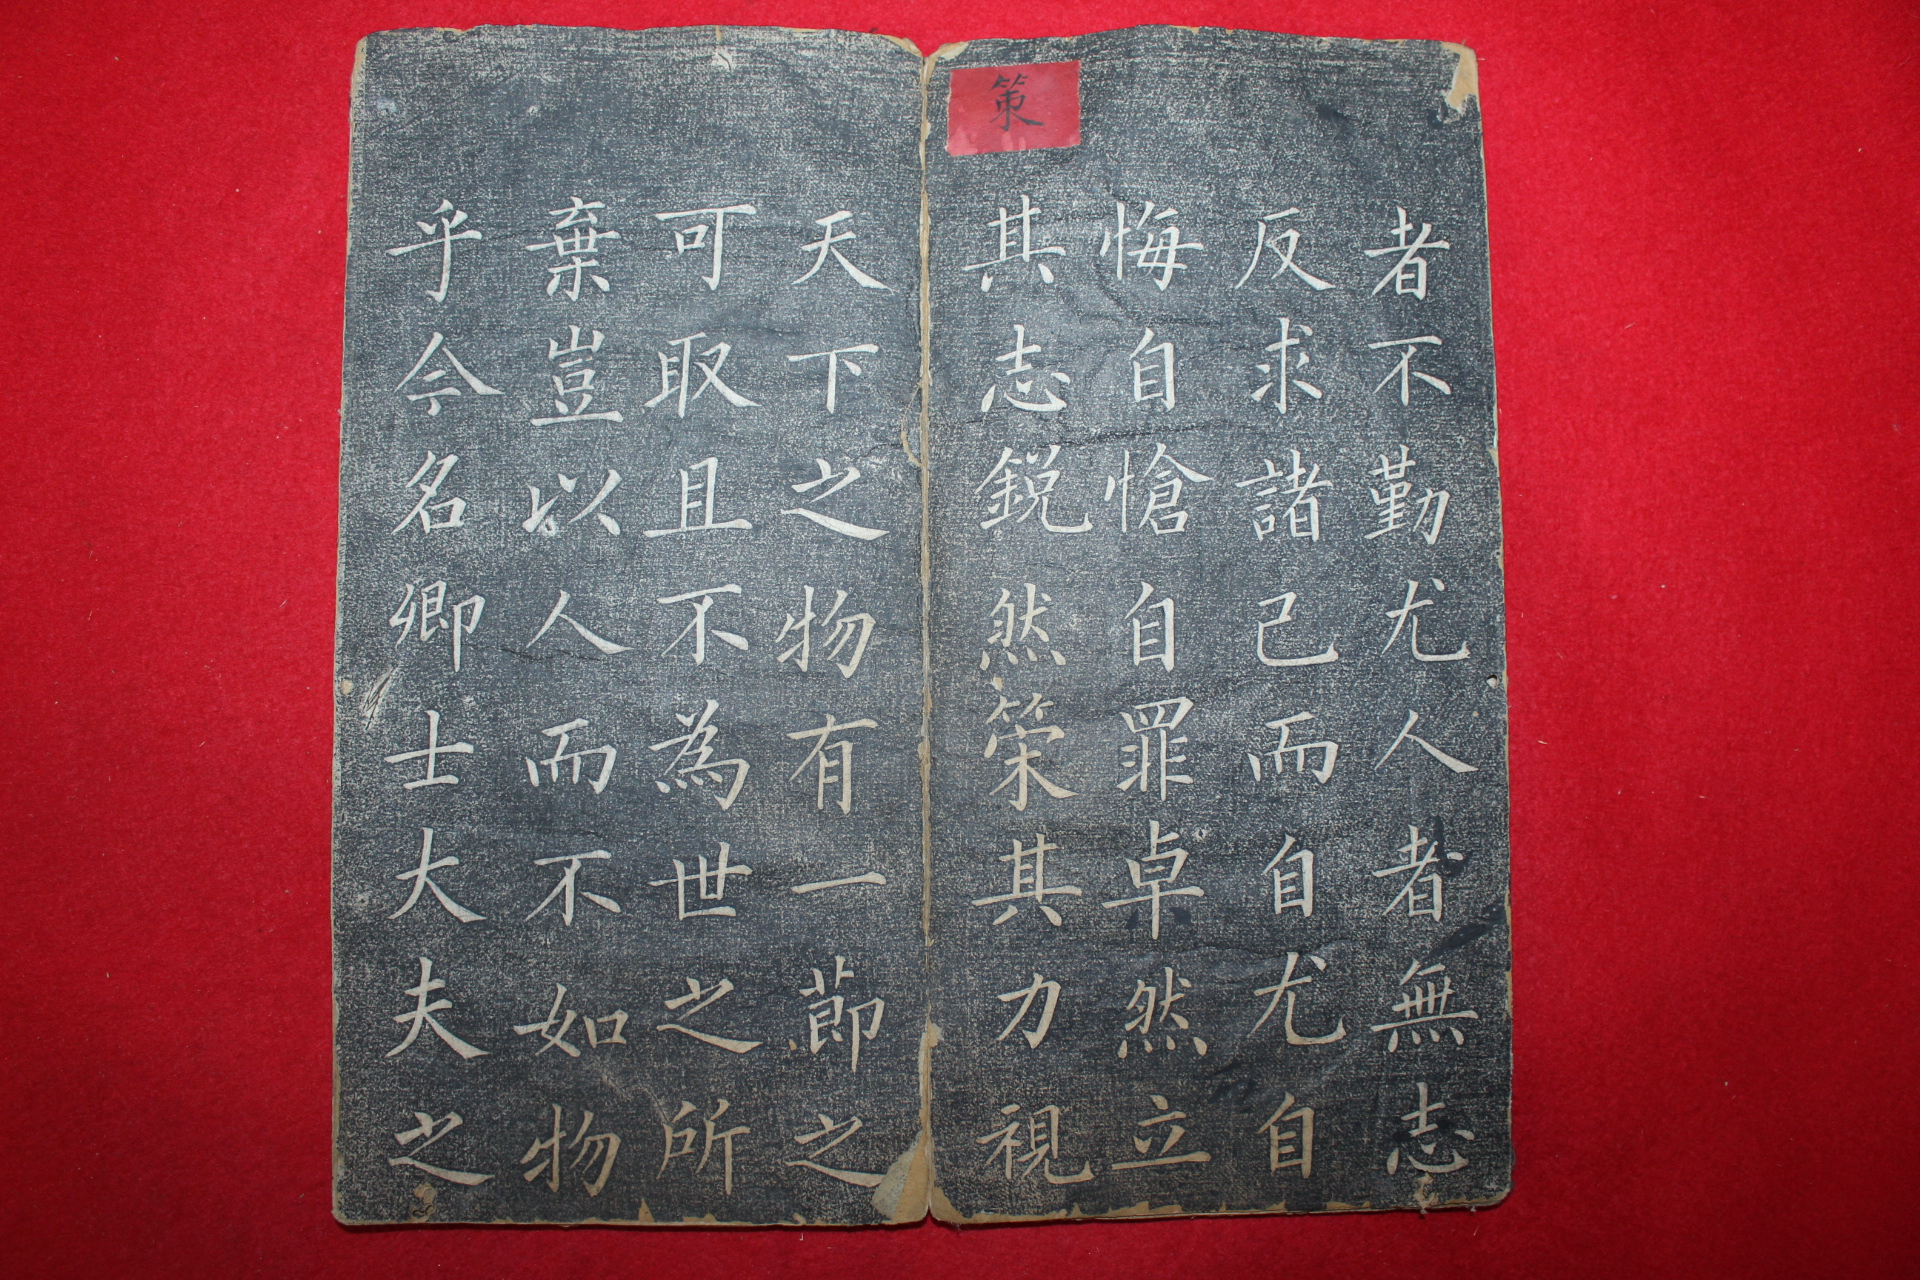 策
者不勤尤人者無志
反求諸己而自尤自
悔自愴自罪卓然立
其志鋭然策其力視
天下之物有一莭之
可取且不為世之所
棄豈以人而不如物
乎今名卿士大夫之